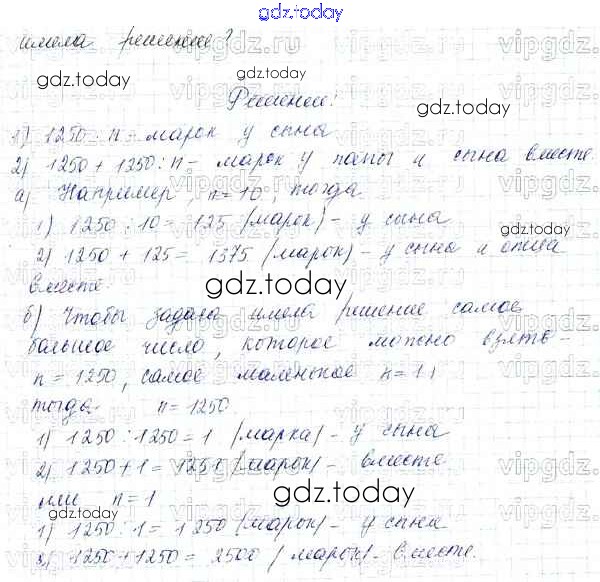 gdz.today
имела решение?
Решение:
1) 1250 : n - марок у сына
2) 1250 + 1250 : n - марок у папы и сына вместе.
а) Например, n = 10, тогда
1) 1250 : 10 = 125 (марок) - у сына
2) 1250 + 125 = 1375 (марок) - у сына и отца
вместе.
б) Чтобы задача имела решение самое
большое число, которое можно взять -
n = 1250, самое маленькое n = 1,
тогда n = 1250
1) 1250 : 1250 = 1 (марка) - у сына
2) 1250 + 1 = 1251 (марок) - вместе
или n = 1
1) 1250 : 1 = 1250 (марок) - у сына
2) 1250 + 1250 = 2500 (марок). Вместе.